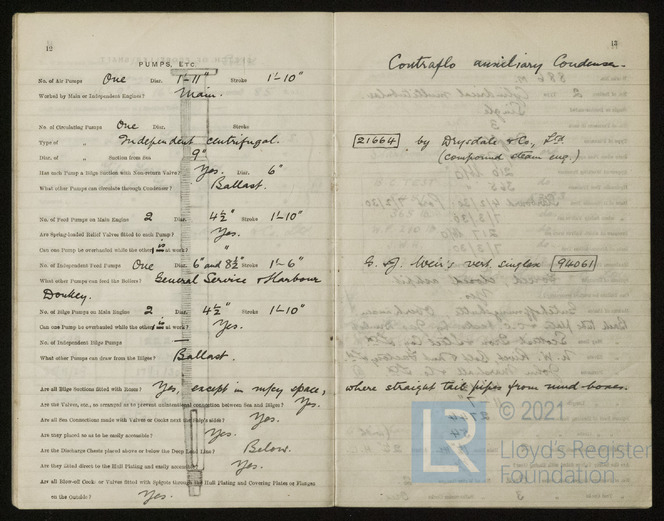 12
PUMPS, ETC.
No. of Air Pumps One Diar. 1'-11" Stroke 1'-10"
Worked by Main or Independent Engines? Main.
No. of Circulating Pumps One Diar. Stroke
Type of " Independent centrifugal.
Diar. of " Suction from Sea 9"
Has each Pump a Bilge Suction with Non-return Valve? Yes. Diar. 6"
What other Pumps can circulate through Condenser? Ballast.
No. of Feed Pumps on Main Engine 2 Diar. 4½" Stroke 1'-10"
Are Spring-loaded Relief Valves fitted to each Pump? Yes.
Can one Pump be overhauled while the other is at work? "
No. of Independent Feed Pumps One Diar. 6" and 8½" Stroke 1'-6"
What other Pumps can feed the Boilers? General Service & Harbour
Donkey.
No. of Bilge Pumps on Main Engine 2 Diar. 4½" Stroke 1'-10"
Can one Pump be overhauled while the other is at work? Yes.
No. of Independent Bilge Pumps —
What other Pumps can draw from the Bilges? Ballast.
Are all Bilge Suctions fitted with Roses? Yes, except in m/cy space,
Are the Valves, etc., so arranged as to prevent unintentional connection between Sea and Bilges? Yes.
Are all Sea Connections made with Valves or Cocks next the Ship's sides? Yes.
Are they placed so as to be easily accessible? Yes.
Are the Discharge Chests placed above or below the Deep Load Line? Below.
Are they fitted direct to the Hull Plating and easily accessible? Yes.
Are all Blow-off Cocks or Valves fitted with Spigots through the Hull Plating and Covering Plates or Flanges
on the Outside? Yes.
13
Contraflo auxiliary Condenser.
21664 by Drysdale & Co., Ltd.
(compound steam eng.)
G. & J. Weir's vert. simplex 94061
where straight tail pipes from mud-boxes.
© 2021
LR
Lloyd's Register
Foundation